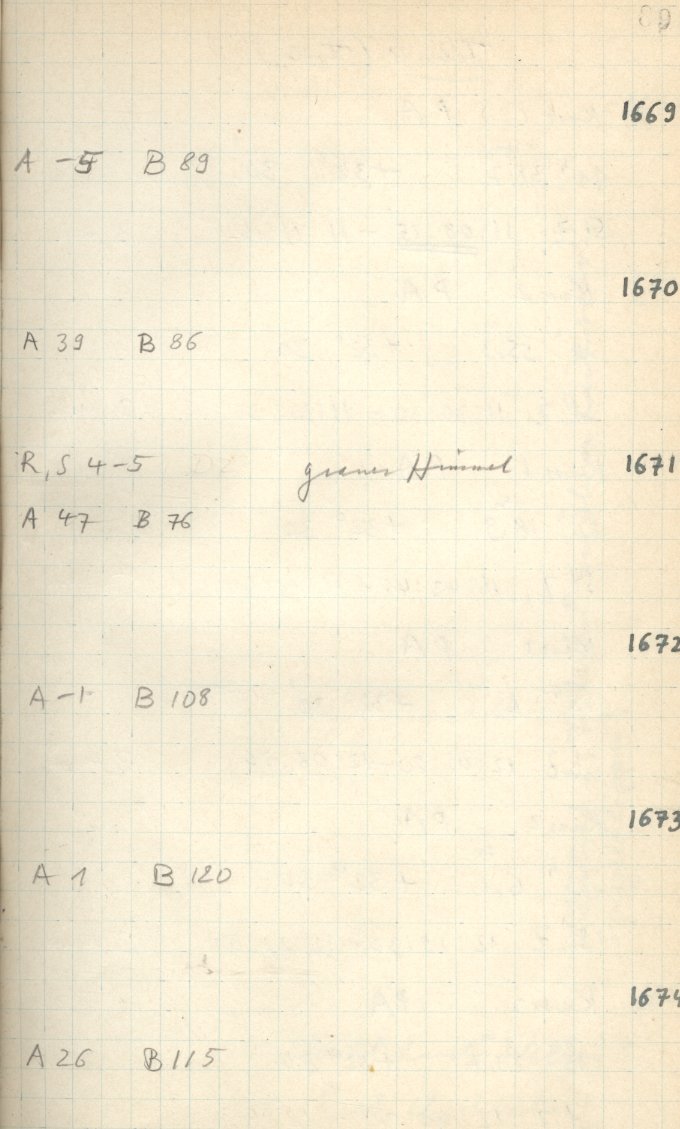 1669
A -5 B 89
1670
A 39 B 86
R, S 4-5 grauer Himmel 1671
A 47 B 76
1672
A -1 B 108
1673
A 1 B 120
1674
A 26 B 115